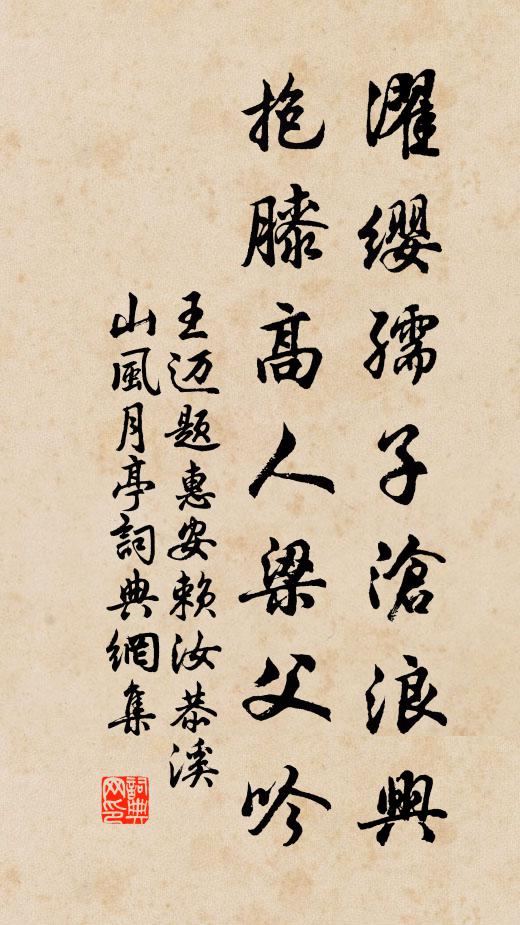 濯纓孺子滄浪興
抱膝高人梁父吟
王迈题惠安赖汝恭溪
山風月亭詞典網集
詞典
网印